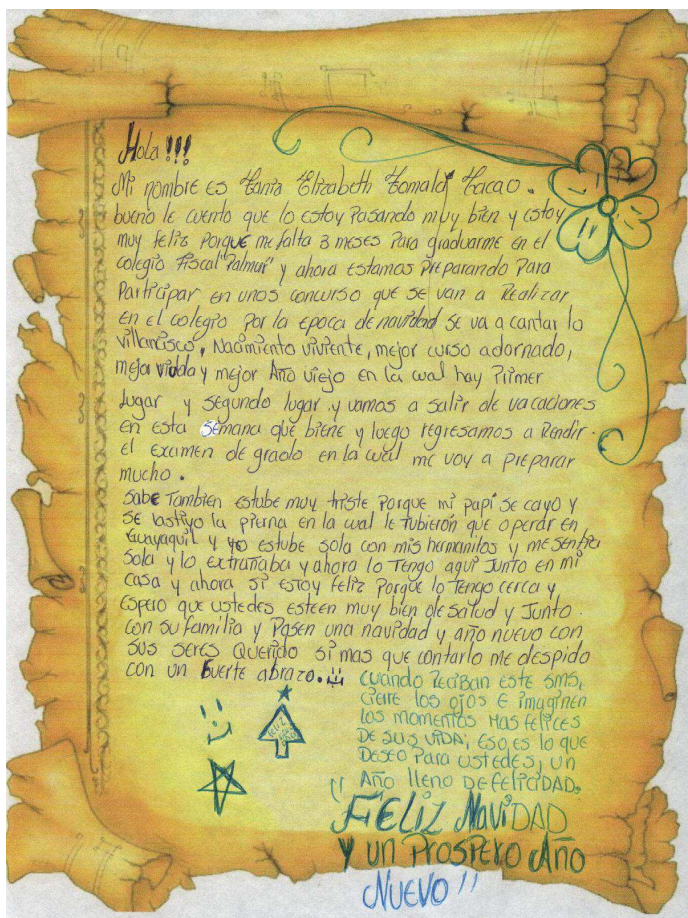 Hola !!!
Mi nombre es Tania Elizabeth Tomalá Tacao.
bueno le cuento que lo estoy Pasando muy bien y estoy
muy feliz Porque me falta 3 meses Para graduarme en el
colegio Fiscal "Palmar" y ahora estamos Preparando Para
Participar en unos concurso que se van a Realizar
en el colegio Por la epoca de navidad se va a cantar lo
villancisco, Nacimiento viviente, mejor curso adornado,
mejor y mejor Año viejo en la cual hay Primer
lugar y segundo lugar y vamos a salir de vacaciones
en esta semana que biene y luego regresamos a Rendir
el examen de grado en la cual me voy a preparar
mucho.
sabe Tambien estube muy triste Porque mi papi se cayo y
se lastiyo la pierna en la cual le tubierón que operar en
Guayaquil y yo estube sola con mis hermanitos y me sentia
sola y lo extrañaba y ahora lo Tengo aqui Junto en mi
casa y ahora si estoy feliz Porque lo Tengo cerca y
espero que ustedes esteen muy bien de salud y Junto
con su familia y Pasen una navidad y año nuevo con
sus seres Querido si mas que contarlo me despido
con un Fuerte abrazo.
cuando Reciban este sms,
cierre los ojos e imaginen
los momentos mas felices
de sus vida, eso es lo que
Deseo Para ustedes, un
Año lleno de felicidad.
FELIZ NAVIDAD
Y UN PROSPERO AÑO
NUEVO !!